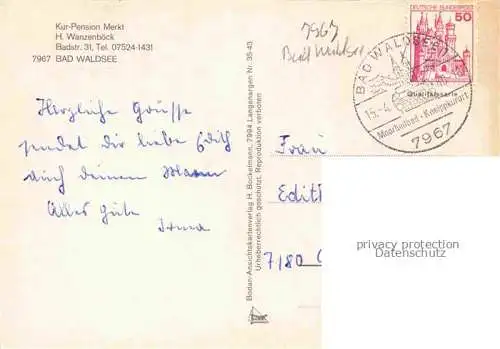 Kur-Pension Merkt
H. Wanzenböck
Badstr. 31, Tel. 07524-1431
7967 BAD WALDSEE
7967
Bad Waldsee
DEUTSCHE BUNDESPOST
50
BAD WALDSEE
15.-4
Moorheilbad - Kneippkurort
7967
Herzliche Grüsse
sendet dir liebe Edith
auch deinem Mann
Alles Gute
Irma
Bodan-Ansichtskartenverlag H. Bockelmann, 7994 Langenargen Nr. 35-43
Urheberrechtlich geschützt. Reproduktion verboten
Frau
Edit
7180 C
privacy protection
Datenschutz